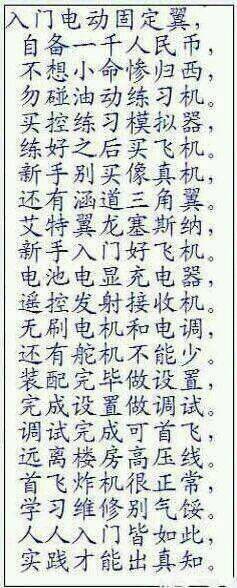 入门电动固定翼，
自备一千人民币，
不想小命惨归西，
勿碰油动练习机。
买控练习模拟器，
练好之后买飞机。
新手别买像真机，
还有涵道三角翼。
艾特翼龙塞斯纳，
新手入门好飞机。
电池电显充电器，
遥控发射接收机。
无刷电机和电调，
还有舵机不能少。
装配完毕做设置，
完成设置做调试。
调试完成可首飞，
远离楼房高压线。
首飞炸机很正常，
学习维修别气馁。
人人入门皆如此，
实践才能出真知。